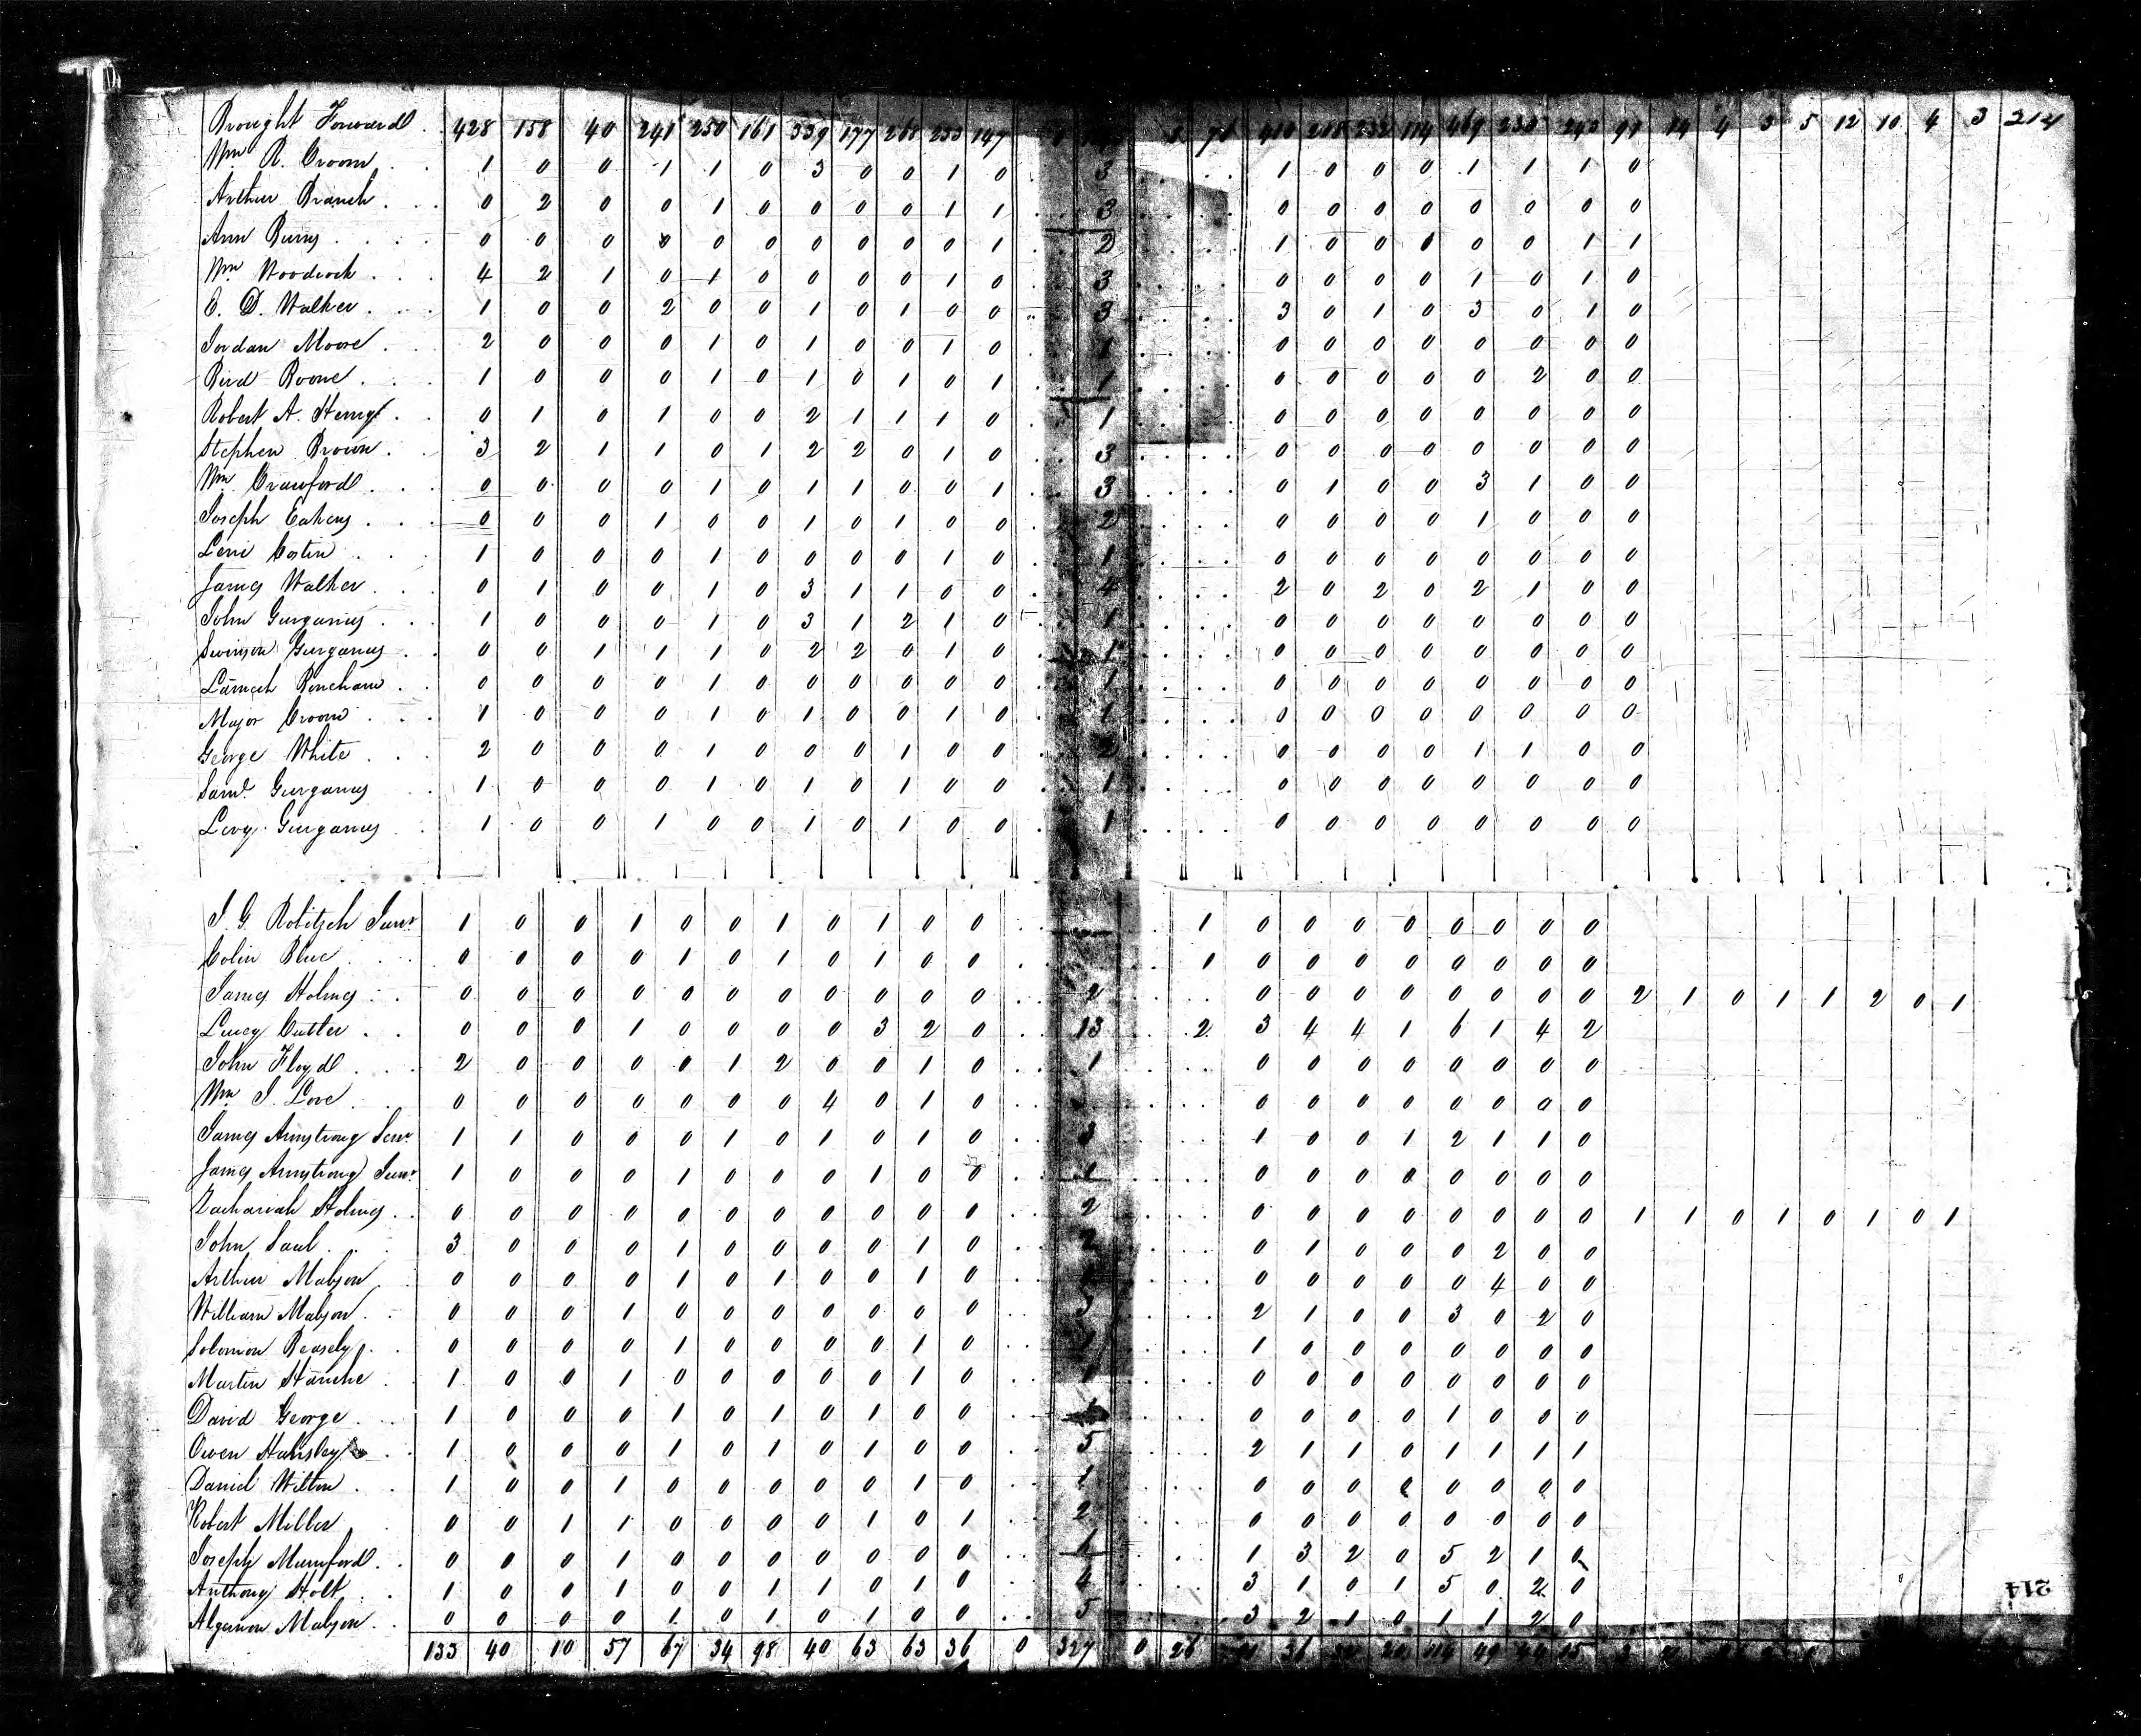 Brought Forward . 428 158 40 241 250 161 339 177 268 233 147 410 218 232 114 469 238 243 99 14 4 3 5 12 10 4 3 214
Wm R. Croom . . 1 0 0 1 1 0 3 0 0 1 0 3 1 0 0 0 1 1 1 0
Arthur Branch . . . 0 2 0 0 1 0 0 0 0 1 1 3 0 0 0 0 0 0 0 0
Ann Burns . . . . 0 0 0 0 0 0 0 0 0 0 1 2 1 0 0 0 0 0 1 1
Wm Woodcock . . . 4 2 1 0 1 0 0 0 0 1 0 3 0 0 0 0 1 0 1 0
E. D. Walker . . . 1 0 0 2 0 0 1 0 1 0 0 3 3 0 1 0 3 0 1 0
Jordan Moore . . 2 0 0 0 1 0 1 0 0 1 0 1 0 0 0 0 0 0 0 0
Bird Boone . . . 1 0 0 0 1 0 1 0 1 0 1 1 0 0 0 0 0 2 0 0
Robert A. Henry . . 0 1 0 1 0 0 2 1 1 1 0 1 0 0 0 0 0 0 0 0
Stephen Brown . . 3 2 1 1 0 1 2 2 0 1 0 3 0 0 0 0 0 0 0 0
Wm Crawford . . . 0 0 0 0 1 0 1 1 0 0 1 3 0 1 0 0 3 1 0 0
Joseph Eakens . . . 0 0 0 1 0 0 1 0 1 0 0 2 0 0 0 0 1 0 0 0
Levi Costin . . . 1 0 0 0 1 0 0 0 0 1 0 1 0 0 0 0 0 0 0 0
James Walker . . . 0 1 0 0 1 0 3 1 1 0 0 4 2 0 2 0 2 1 0 0
John Gurganus . . . 1 0 0 0 1 0 3 1 2 1 0 1 0 0 0 0 0 0 0 0
Swinson Gurganus . . 0 0 1 1 1 0 2 2 0 1 0 1 0 0 0 0 0 0 0 0
Lamech Bencham . . 0 0 0 0 1 0 0 0 0 0 0 1 0 0 0 0 0 0 0 0
Major Croom . . . 1 0 0 0 1 0 1 0 0 1 0 1 0 0 0 0 0 0 0 0
George White . . . 2 0 0 0 1 0 0 0 1 0 0 2 0 0 0 0 1 1 0 0
Saml. Gurganus . 1 0 0 0 1 0 1 0 1 0 0 1 0 0 0 0 0 0 0 0
Levy Gurganus . 1 0 0 1 0 0 1 0 1 0 0 1 0 0 0 0 0 0 0 0
J. G. Robitzch Junr 1 0 0 1 0 0 1 0 1 0 0 1 0 0 0 0 0 0 0 0
Colin Blue . . . 0 0 0 0 1 0 1 0 1 0 0 1 0 0 0 0 0 0 0 0
James Holmes . . 0 0 0 0 0 0 0 0 0 0 0 2 0 0 0 0 0 0 0 0 2 1 0 1 1 2 0 1
Lucy Cutler . . 0 0 0 1 0 0 0 0 3 2 0 13 2 3 4 4 1 6 1 4 2
John Floyd . . . 2 0 0 0 0 1 2 0 0 1 0 1 0 0 0 0 0 0 0 0
Wm J. Love . . 0 0 0 0 0 0 0 4 0 1 0 0 0 0 0 0 0 0 0
James Armstrong Senr. 1 1 0 0 0 1 0 1 0 1 0 3 1 0 0 1 2 1 1 0
James Armstrong Junr. 1 0 0 0 1 0 0 0 1 0 0 1 0 0 0 0 0 0 0 0
Zachariah Holmes . . 0 0 0 0 0 0 0 0 0 0 0 2 0 0 0 0 0 0 0 0 1 1 0 1 0 1 0 1
John Saul . . . 3 0 0 0 1 0 0 0 0 1 0 2 0 1 0 0 0 2 0 0
Arthur Mabson . 0 0 0 0 1 0 1 0 0 1 0 0 0 0 0 0 4 0 0
William Mabson . . 0 0 0 1 0 0 0 0 0 0 0 5 2 1 0 0 3 0 2 0
Solomon Beasely . . 0 0 0 0 1 0 0 0 0 1 0 1 1 0 0 0 0 0 0 0
Martin Hanche . 1 0 0 1 0 0 0 0 0 1 0 1 0 0 0 0 0 0 0 0
David George . . . 1 0 0 0 1 0 1 0 1 0 0 0 0 0 0 1 0 0 0
Owen Hansley . . 1 0 0 0 1 0 1 0 1 0 0 5 2 1 1 0 1 1 1 1
Daniel Wilton . . 1 0 0 1 0 0 0 0 0 1 0 1 0 0 0 0 0 0 0 0
Robert Miller . 0 0 1 1 0 0 0 0 1 0 1 2 0 0 0 0 0 0 0 0
Joseph Mumford . . 0 0 0 1 0 0 0 0 0 0 0 1 3 2 0 5 2 1 0
Anthony Holt . . 1 0 0 1 0 0 1 1 0 1 0 4 3 1 0 1 5 0 2 0
Algernon Mabson . . 0 0 0 0 1 0 1 0 1 0 0 5 3 2 1 0 1 1 2 0
214
133 40 10 57 67 34 98 40 63 63 36 0 327 0 26 36 20 114 49 44 15